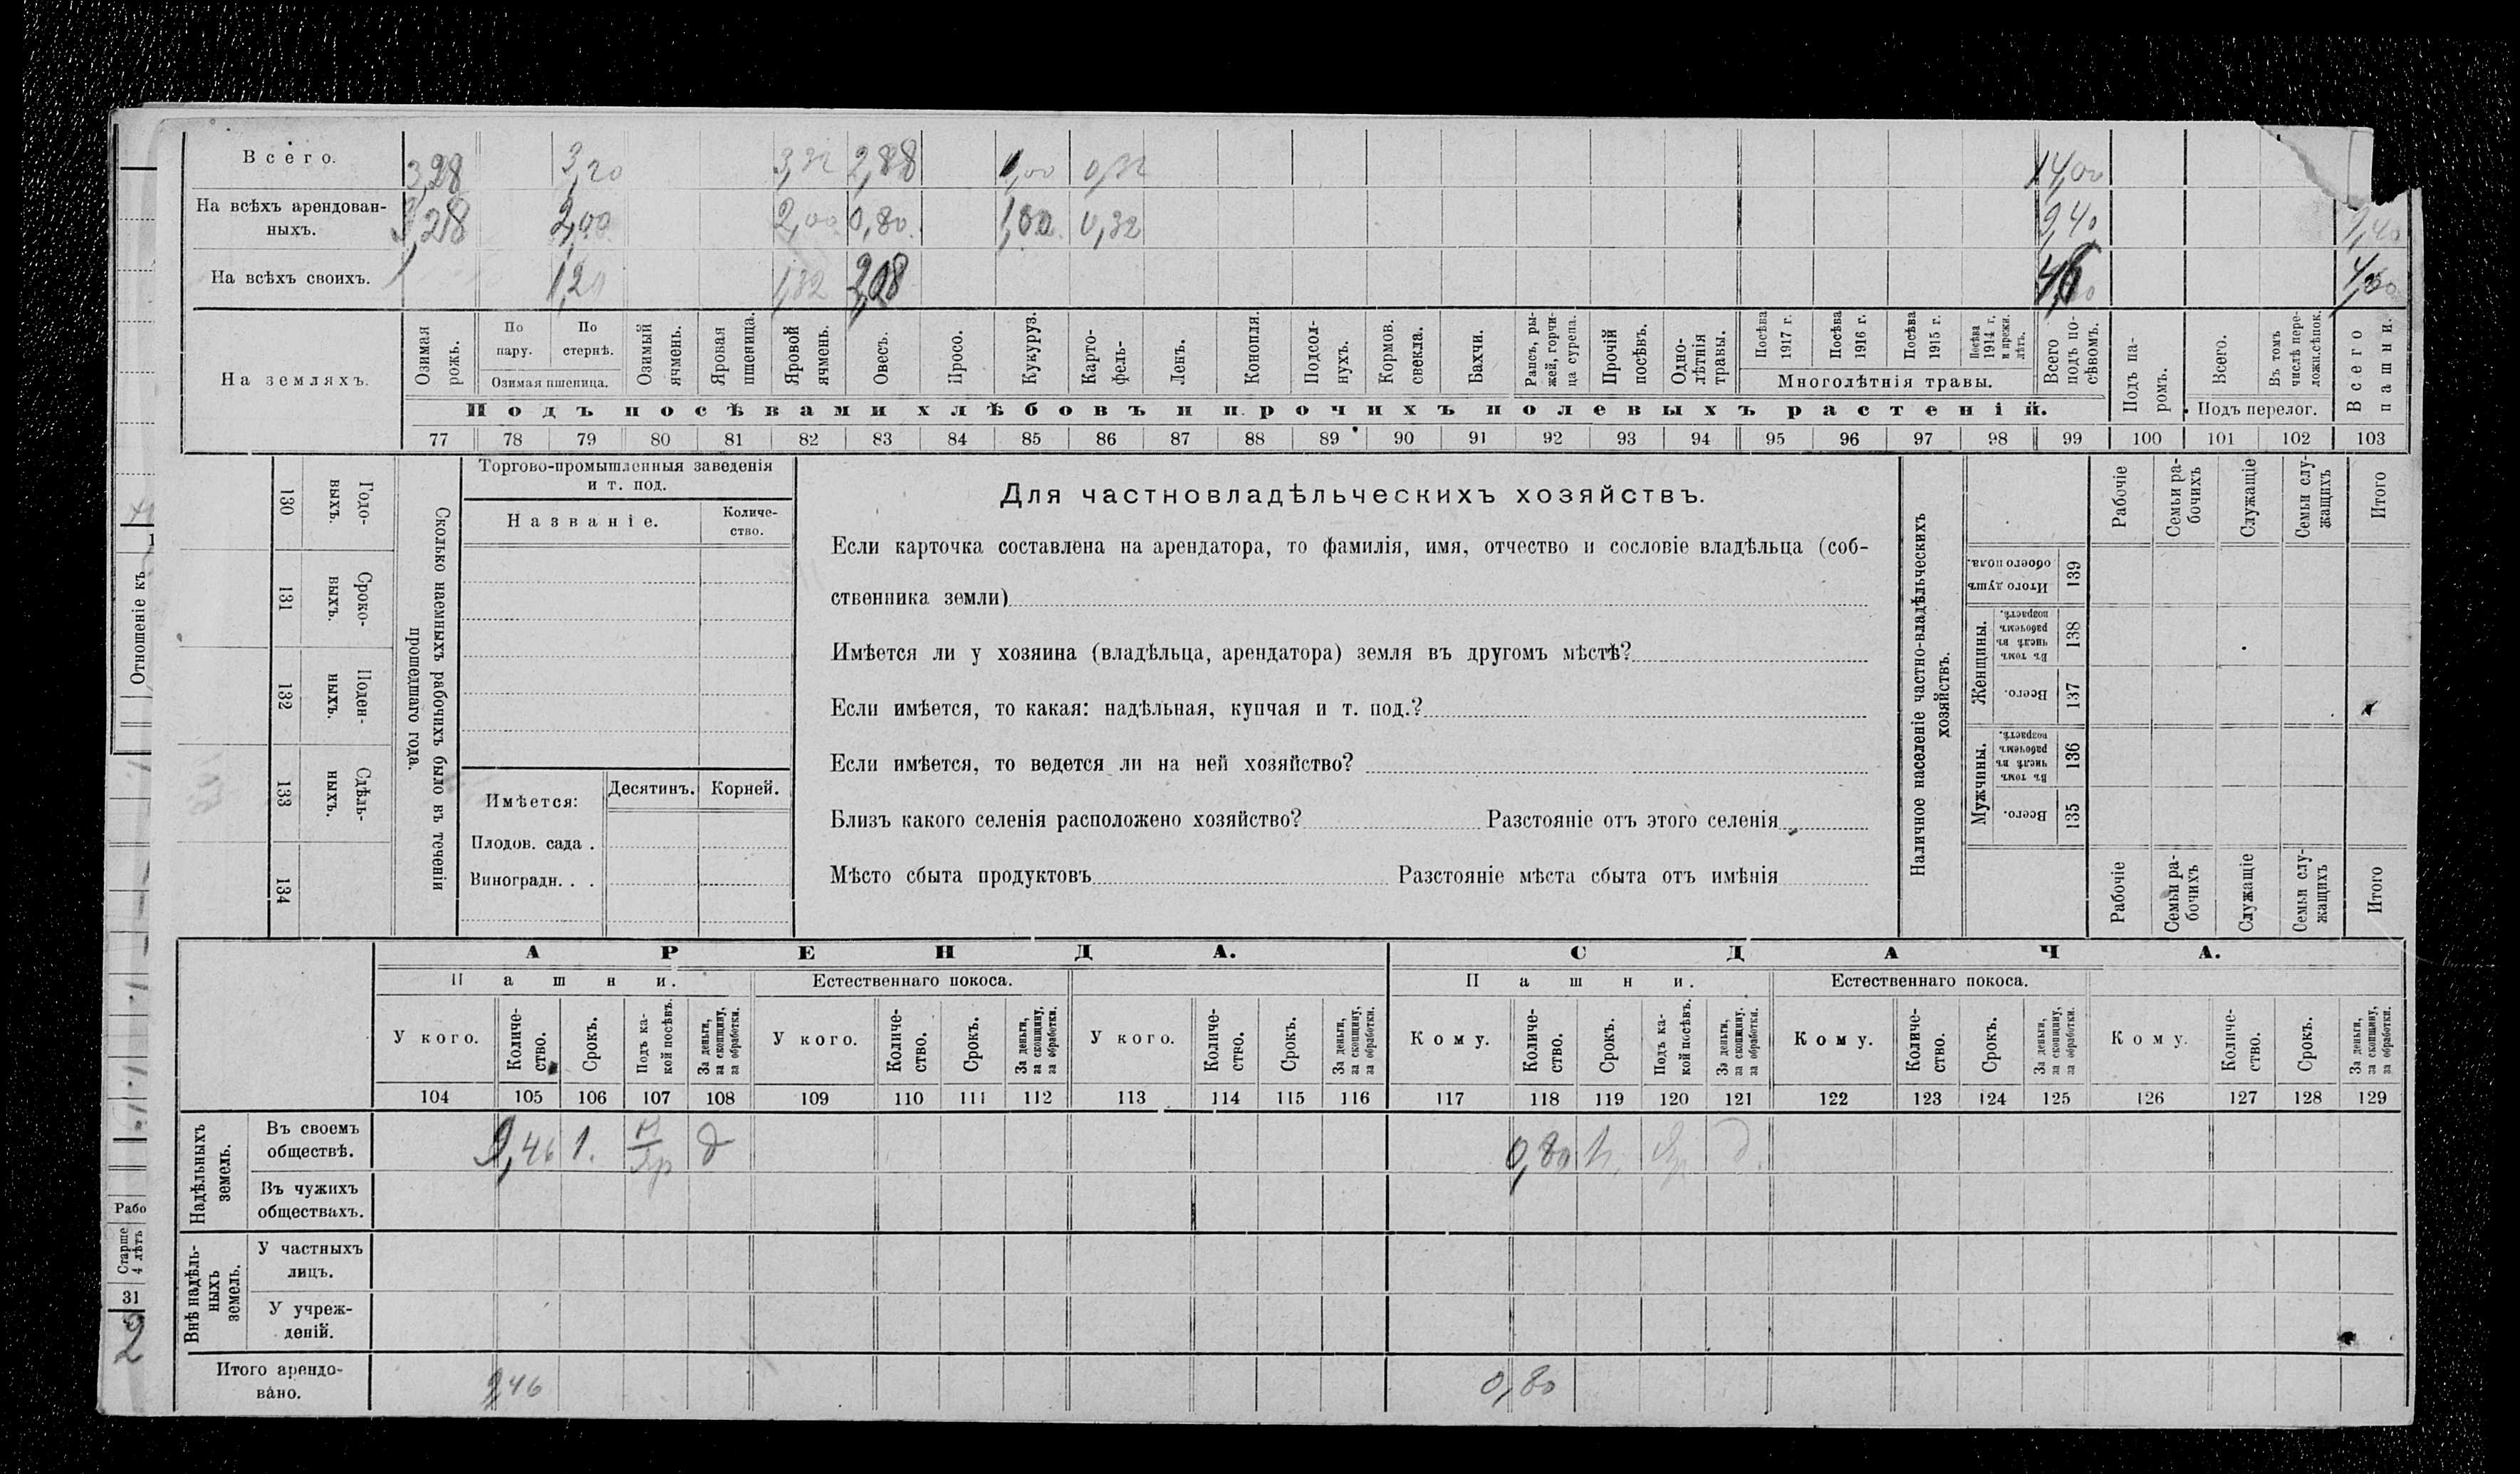 Всего. 3,28 3,20 3,32 2,88 1,00 0,32 14,00
На всѣхъ арендован-
ныхъ. 3,28 2,00 2,00 0,80 1,00 0,32 9,40 1,40
На всѣхъ своихъ. 1,20 1,32 2,08 4,60
На земляхъ.
Озимая
рожь.
По
пару.
По
стернѣ.
Озимая пшеница.
Озимый
ячмень.
Яровая
пшеница.
Яровой
ячмень.
Овесъ.
Просо.
Кукуруз.
Карто-
фель-
Ленъ.
Конопля.
Подсол-
нухъ.
Кормов.
свекла.
Бахчи.
Рапсъ, ры-
жей, горчи-
ца сурепа.
Прочій
посѣвъ.
Одно-
лѣтнія
травы.
Посѣва
1917 г.
Посѣва
1916 г.
Посѣва
1915 г.
Посѣва
1914 г.
и прежн.
лѣтъ.
Многолѣтнія травы.
Всего
подъ по-
сѣвомъ.
Подъ па-
ромъ.
Всего.
Въ томъ
числѣ пере-
ложн.сѣнок.
Подъ перелог.
Всего
пашни.
Подъ посѣвами хлѣбовъ и прочихъ полевыхъ растеній.
77 78 79 80 81 82 83 84 85 86 87 88 89 90 91 92 93 94 95 96 97 98 99 100 101 102 103
130
Годо-
выхъ.
131
Сроко-
выхъ.
132
Поден-
ныхъ.
133
Сдѣль-
ныхъ.
134
Сколько наемныхъ рабочихъ было въ теченіи
прошедшаго года.
Торгово-промышленныя заведенія
и т. под.
Названіе.
Количе-
ство.
Имѣется:
Десятинъ. Корней.
Плодов. сада .
Виноградн. . .
Для частновладѣльческихъ хозяйствъ.
Если карточка составлена на арендатора, то фамилія, имя, отчество и сословіе владѣльца (соб-
ственника земли)
Имѣется ли у хозяина (владѣльца, арендатора) земля въ другомъ мѣстѣ?
Если имѣется, то какая: надѣльная, купчая и т. под.?
Если имѣется, то ведется ли на ней хозяйство?
Близъ какого селенія расположено хозяйство? Разстояніе отъ этого селенія
Мѣсто сбыта продуктовъ Разстояніе мѣста сбыта отъ имѣнія
Наличное населеніе частно-владѣльческихъ
хозяйствъ.
Рабочіе
Семьи ра-
бочихъ
Служащіе
Семьи слу-
жащихъ
Итого
Итого душъ
обоего пола.
139
Женщины.
Въ томъ
числѣ въ
рабочемъ
возрастѣ.
138
Всего.
137
Мужчины.
Въ томъ
числѣ въ
рабочемъ
возрастѣ.
136
Всего.
135
Рабочіе
Семьи ра-
бочихъ
Служащіе
Семьи слу-
жащихъ
Итого
АРЕНДА. СДАЧА.
Пашни. Естественнаго покоса. Пашни. Естественнаго покоса.
У кого.
Количе-
ство.
Срокъ.
Подъ ка-
кой посѣвъ.
За деньги,
за скопщину,
за обработки.
У кого.
Количе-
ство.
Срокъ.
За деньги,
за скопщину,
за обработки.
У кого.
Количе-
ство.
Срокъ.
За деньги,
за скопщину,
за обработки.
Кому.
Количе-
ство.
Срокъ.
Подъ ка-
кой посѣвъ.
За деньги,
за скопщину,
за обработки.
Кому.
Количе-
ство.
Срокъ.
За деньги,
за скопщину,
за обработки.
Кому.
Количе-
ство.
Срокъ.
За деньги,
за скопщину,
за обработки.
104 105 106 107 108 109 110 111 112 113 114 115 116 117 118 119 120 121 122 123 124 125 126 127 128 129
Надѣльныхъ
земель.
Въ своемъ
обществѣ. 9,46 1. д 0,80 д
Въ чужихъ
обществахъ.
Внѣ надѣль-
ныхъ
земель.
У частныхъ
лицъ.
У учреж-
деній.
Итого арендо-
вано. 9,46 0,80
Отношеніе къ
Рабо
Старше
4 лѣтъ
31
2